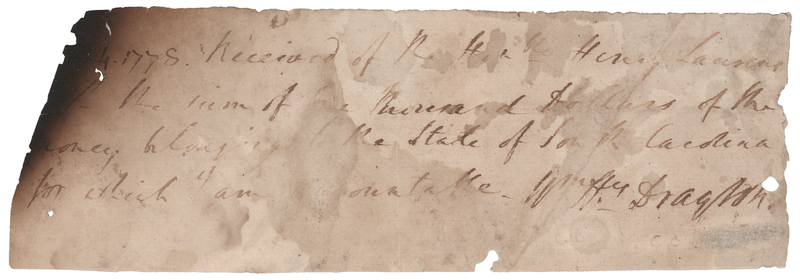 4. 1778. Received of the Honble Henry Laurens
the sum of One thousand Dollars of the
money belonging to the State of South Carolina
for which I am accountable. Wm Hy Drayton.